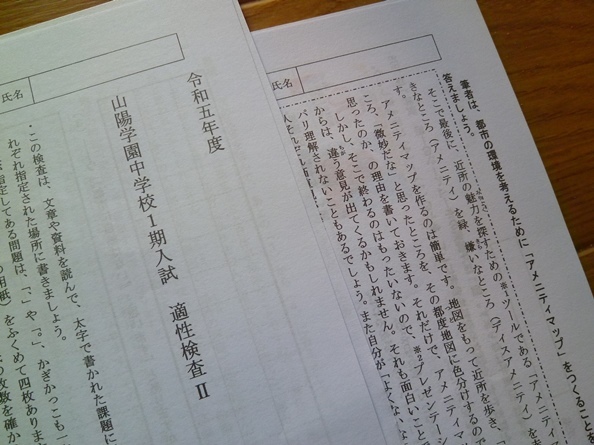 筆者は、都市の環境を考えるために「アメニティマップ」をつくることを
答えましょう。
そこで最後に、近所の魅力を探すための※1ツールである「アメニティマ
きなところ（アメニティ）を緑、嫌いなところ（ディスアメニティ）
す。
アメニティマップを作るのは簡単です。地図をもって近所を歩き、
ころ、微妙だな」と思ったところを、その都度地図に色分けするの
思ったのか、の理由を書いておきます。それだけで、アメニティ
しかし、そこで終わるのはもったいないので、※2プレゼンテーシ
からは、違う意見が出てくるかもしれません。それも面白いこと
パリ理解されないこともあるでしょう。また自分が「よくない
氏名
令和五年度
山陽学園中学校1期入試 適性検査Ⅱ
・この検査は、文章や資料を読んで、太字で書かれた課題に
れぞれ指定された場所に書きましょう。
指定してある問題は、「、」や「。」、かぎかっこも一
用紙」をふくめて四枚ありま
枚数を確か
氏名